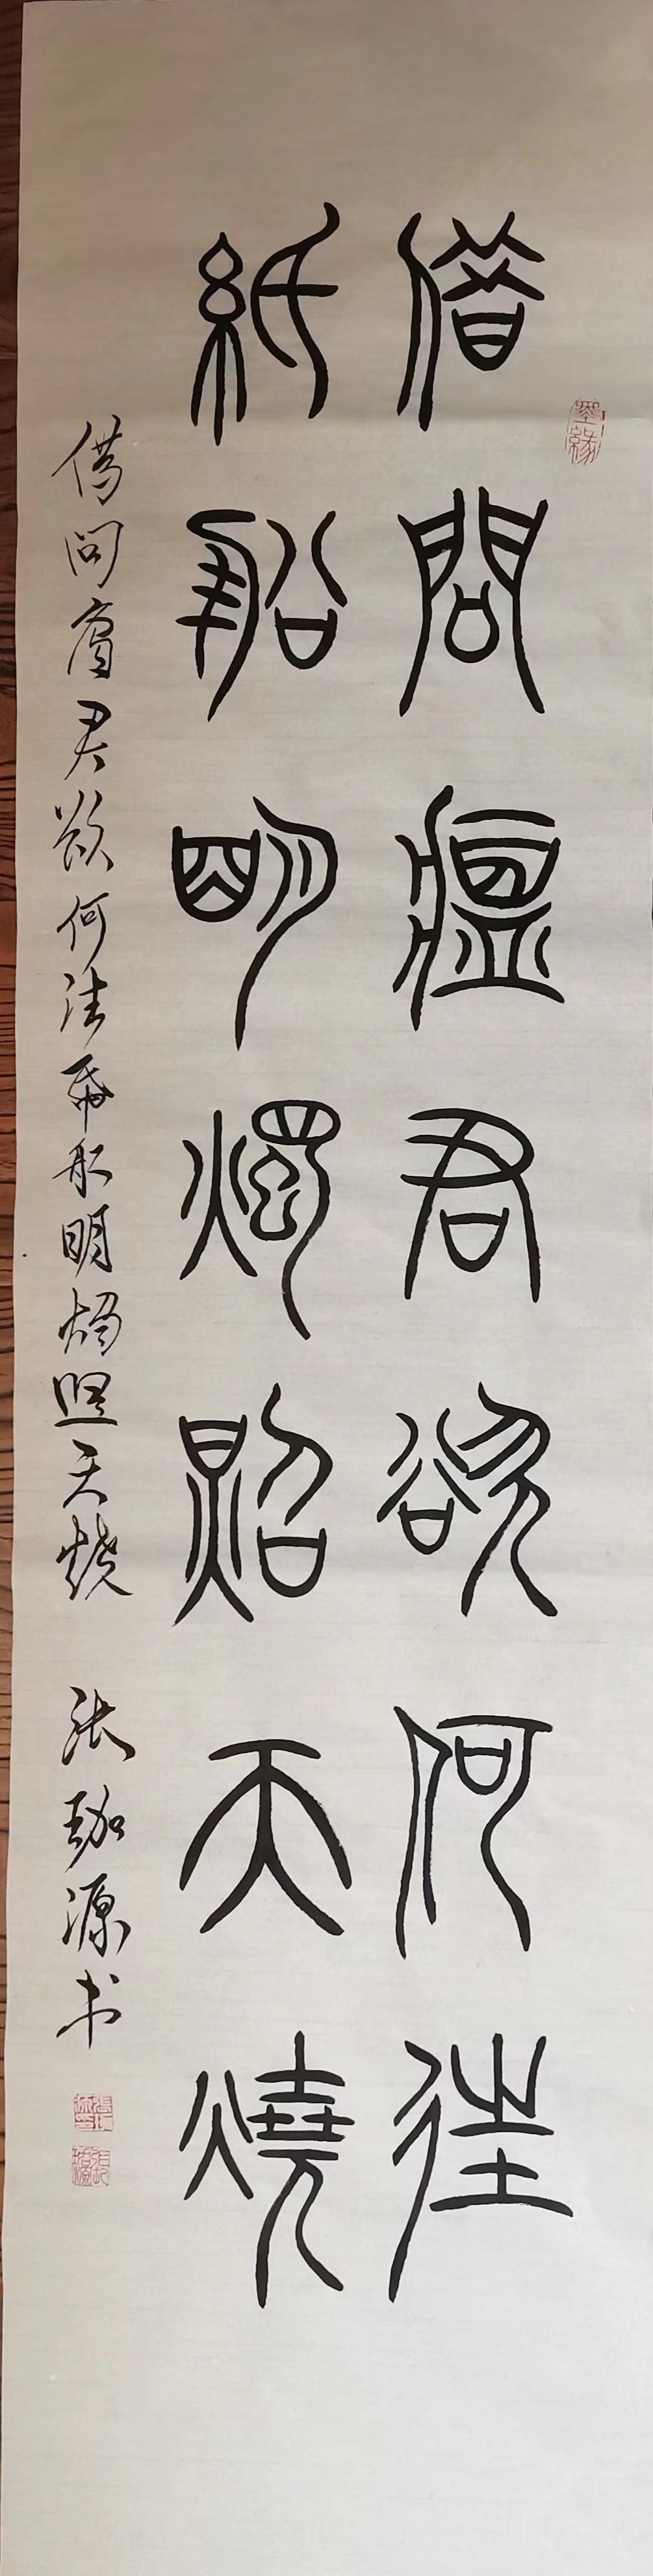 借問瘟君欲何往
紙船明燭照天燒
借问瘟君欲何往 帋船明烛照天烧 张珈源书
墨緣